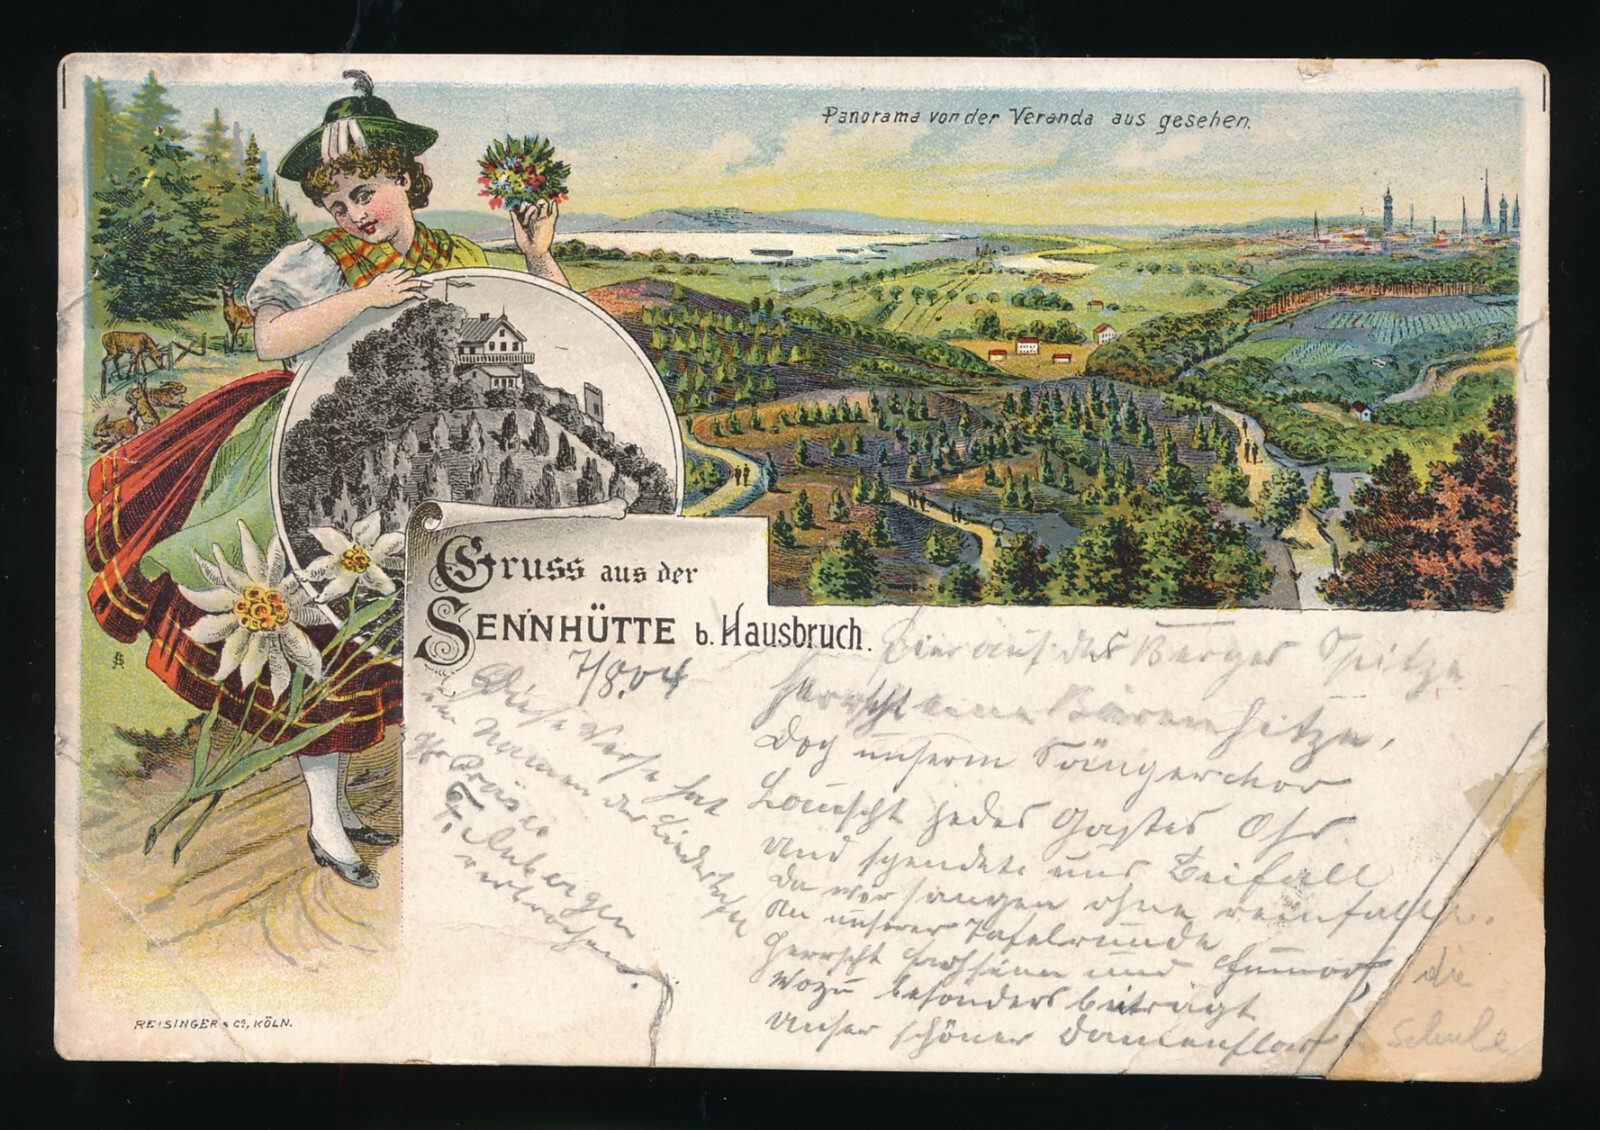 Panorama von der Veranda aus gesehen.
Gruss aus der
SENNHÜTTE b. Hausbruch.
7/8.04
Hier auf des Berges Spitze
herrscht eine Bärenhitze,
Doch unserm Sängerchor
Lauscht jedes Gastes Ohr
Und spendete uns Beifall
Da wir sangen ohne reinfall.
An unserer Tafelrunde
Herrscht Frohsinn und Humor,
Wozu besonders beiträgt
Unser schöner Damenflor
die
Schule
Diese Verse hat
im Namen der Liedertafel
F.
verbrochen.
REISINGER & Co, KÖLN.